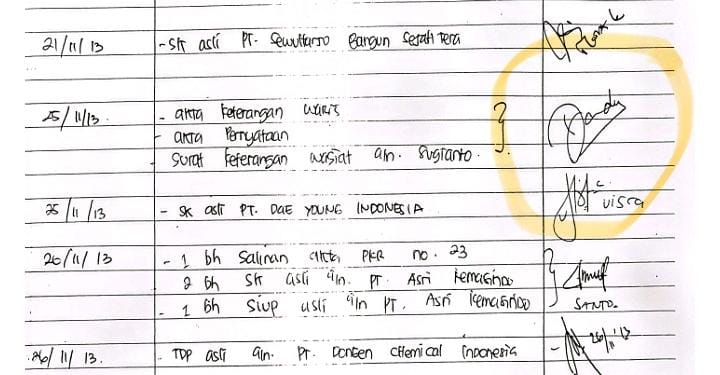 21/11/13 - SK asli PT. Sewuttarto Bangun Sejahtera
25/11/13. - akta keterangan waris
- akta Pernyataan
- Surat keterangan wasiat an. Sugianto.
25/11/13 - SK asli PT. DAE YOUNG INDONESIA VISCA
26/11/13 - 1 bh Salinan akta PKR no. 23
2 bh SK asli a/n. PT. Asri Kemasindo
- 1 bh Siup asli a/n PT. Asri Kemasindo SANTO.
26/11/13. - TDP asli a/n. PT. Dongen Chemical Indonesia - 26/11'13